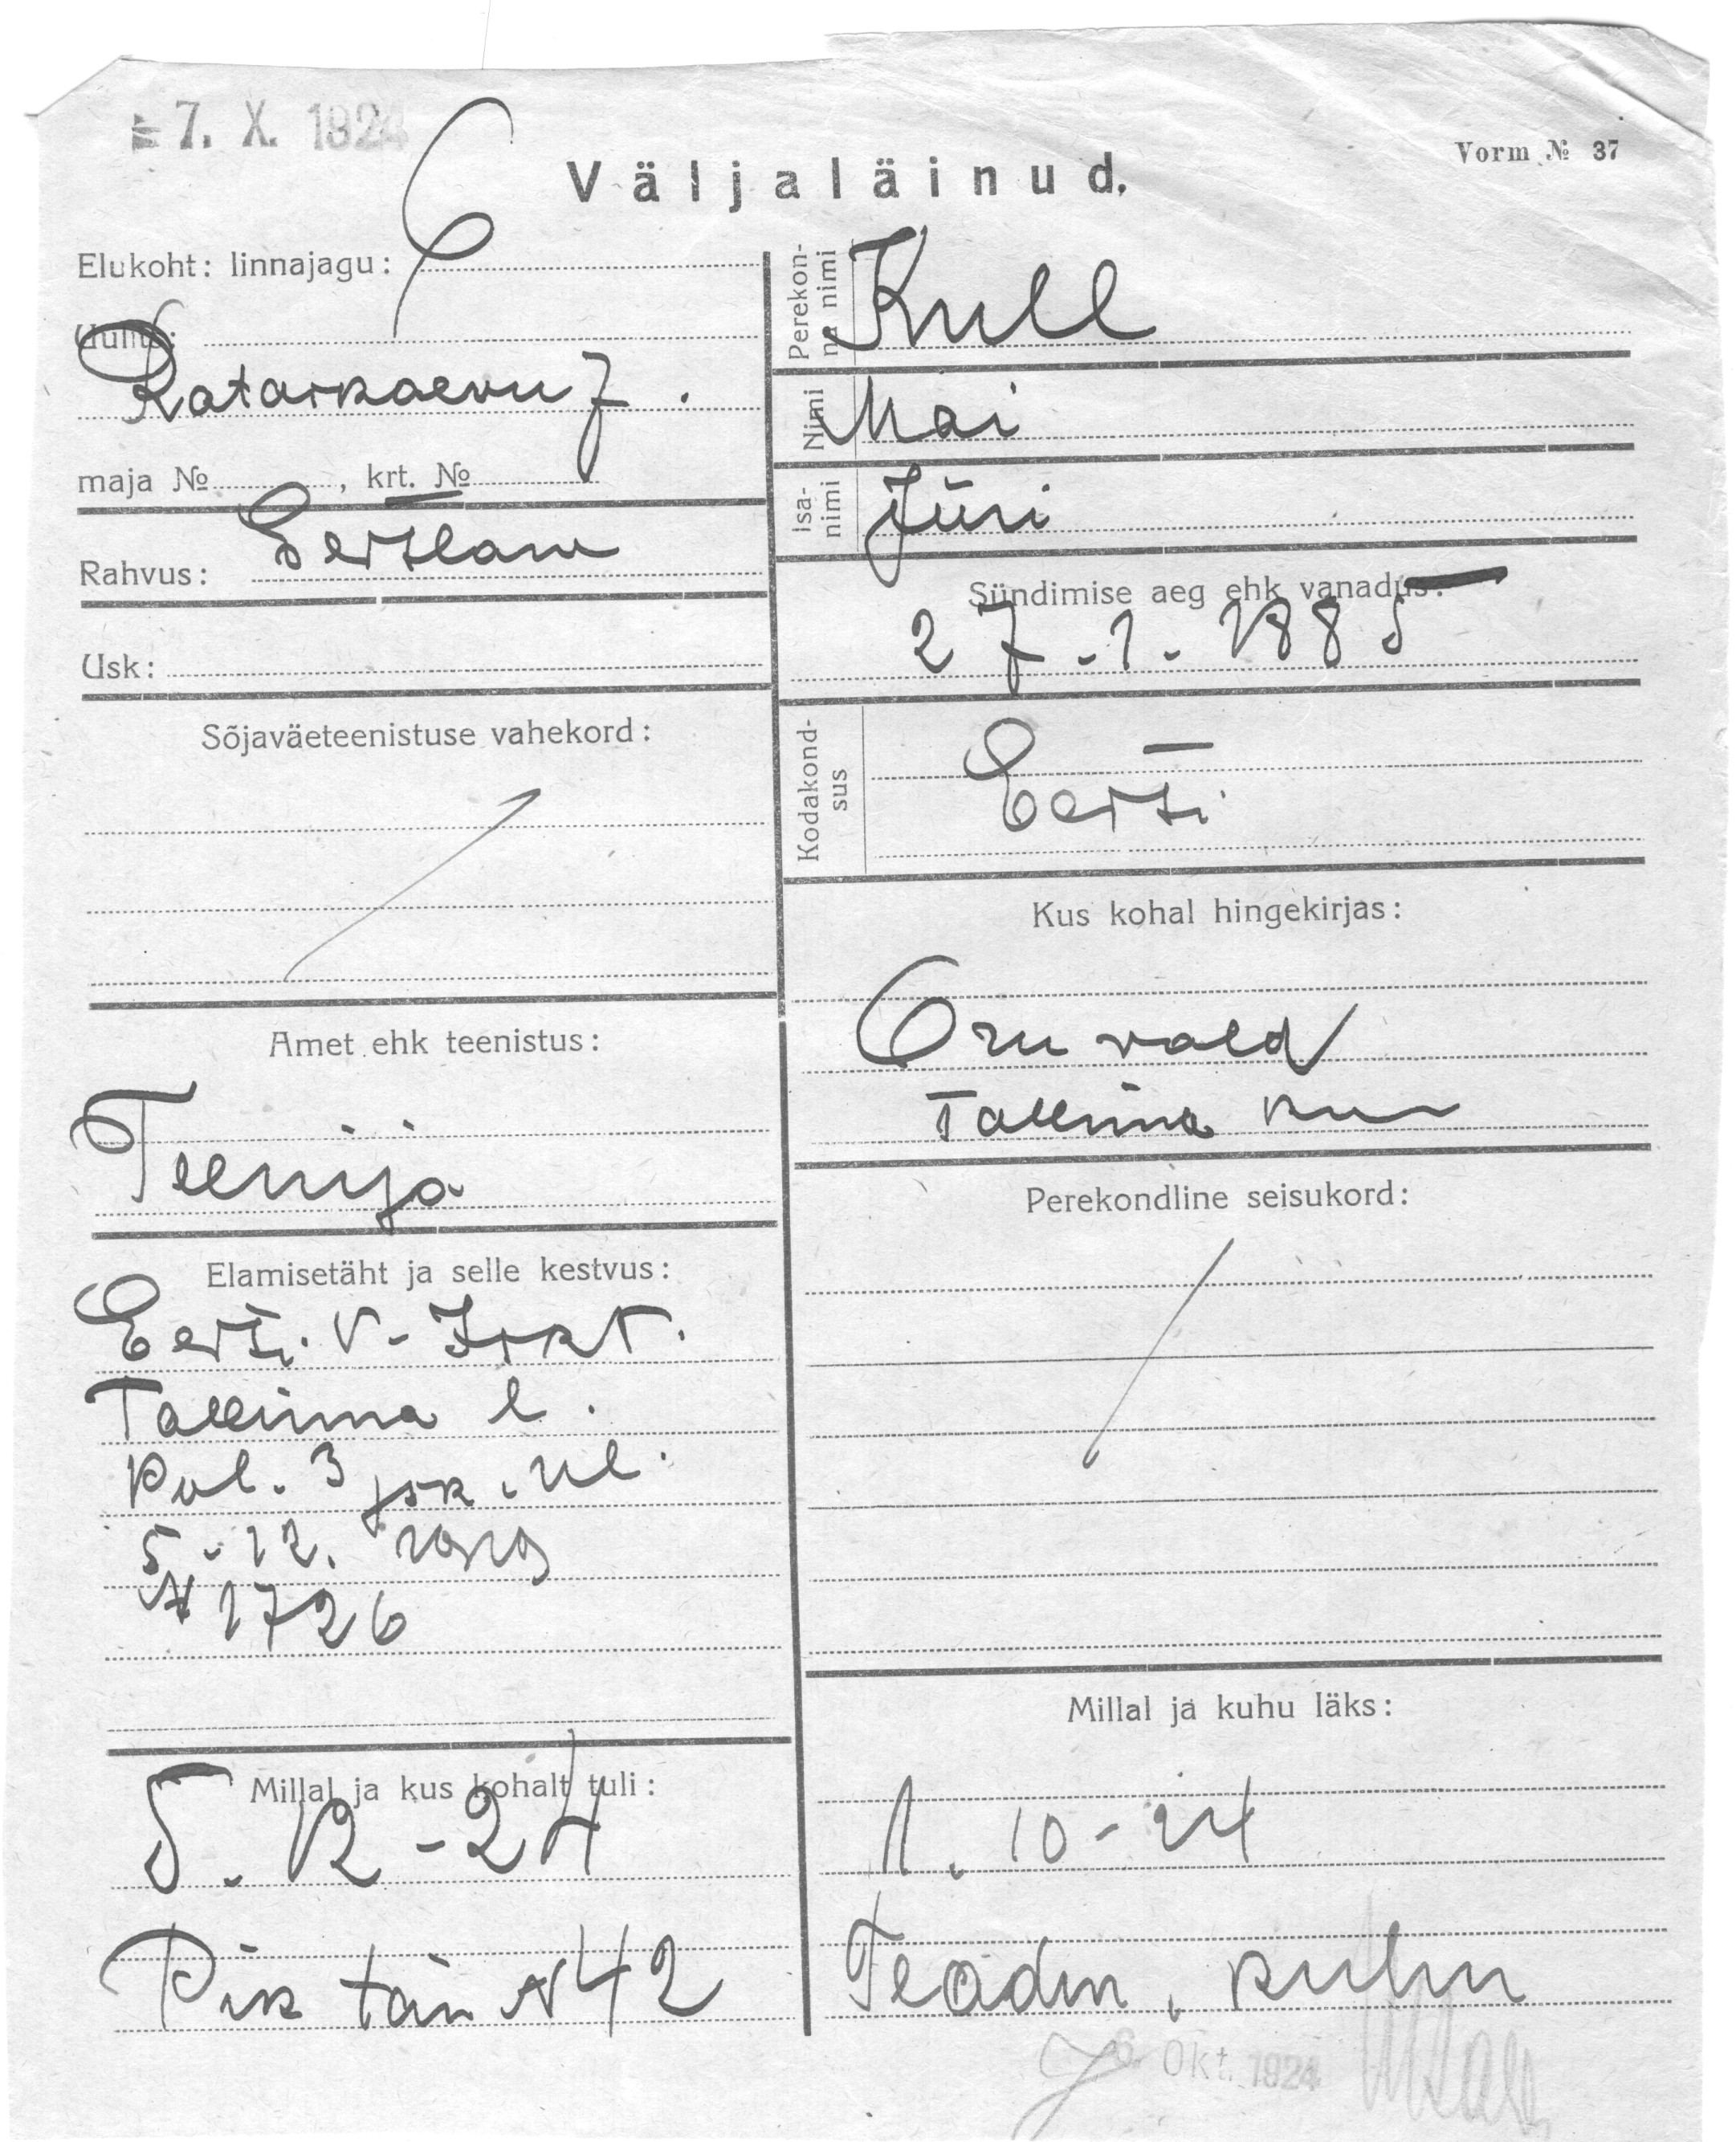 = 7. X. 1924
Vorm № 37
Väljaläinud.
Elukoht: linnajagu: 6
Uulits:
Rataskaevu 7.
maja № , krt. №
Rahvus: Eestlane
Usk:
Sõjaväeteenistuse vahekord:
Amet ehk teenistus:
Teenija
Elamisetäht ja selle kestvus:
Eesti. V-
Tallinna l.
Pol. 3 jsk. ül.
5-12. 1919
№ 1726
Millal ja kus kohalt tuli:
5. 12 - 24
Pik tän № 42
Perekonna nimi Kull
Nimi Mai
Isanimi Jüri
Sündimise aeg ehk vanadus:
27.-1.-1885
Kodakondsus
Eesti
Kus kohal hingekirjas:
Oru vald
Tallinna
Perekondline seisukord:
Millal ja kuhu läks:
1. 10 - 24
Teadm. kuhu
6. Okt. 1924